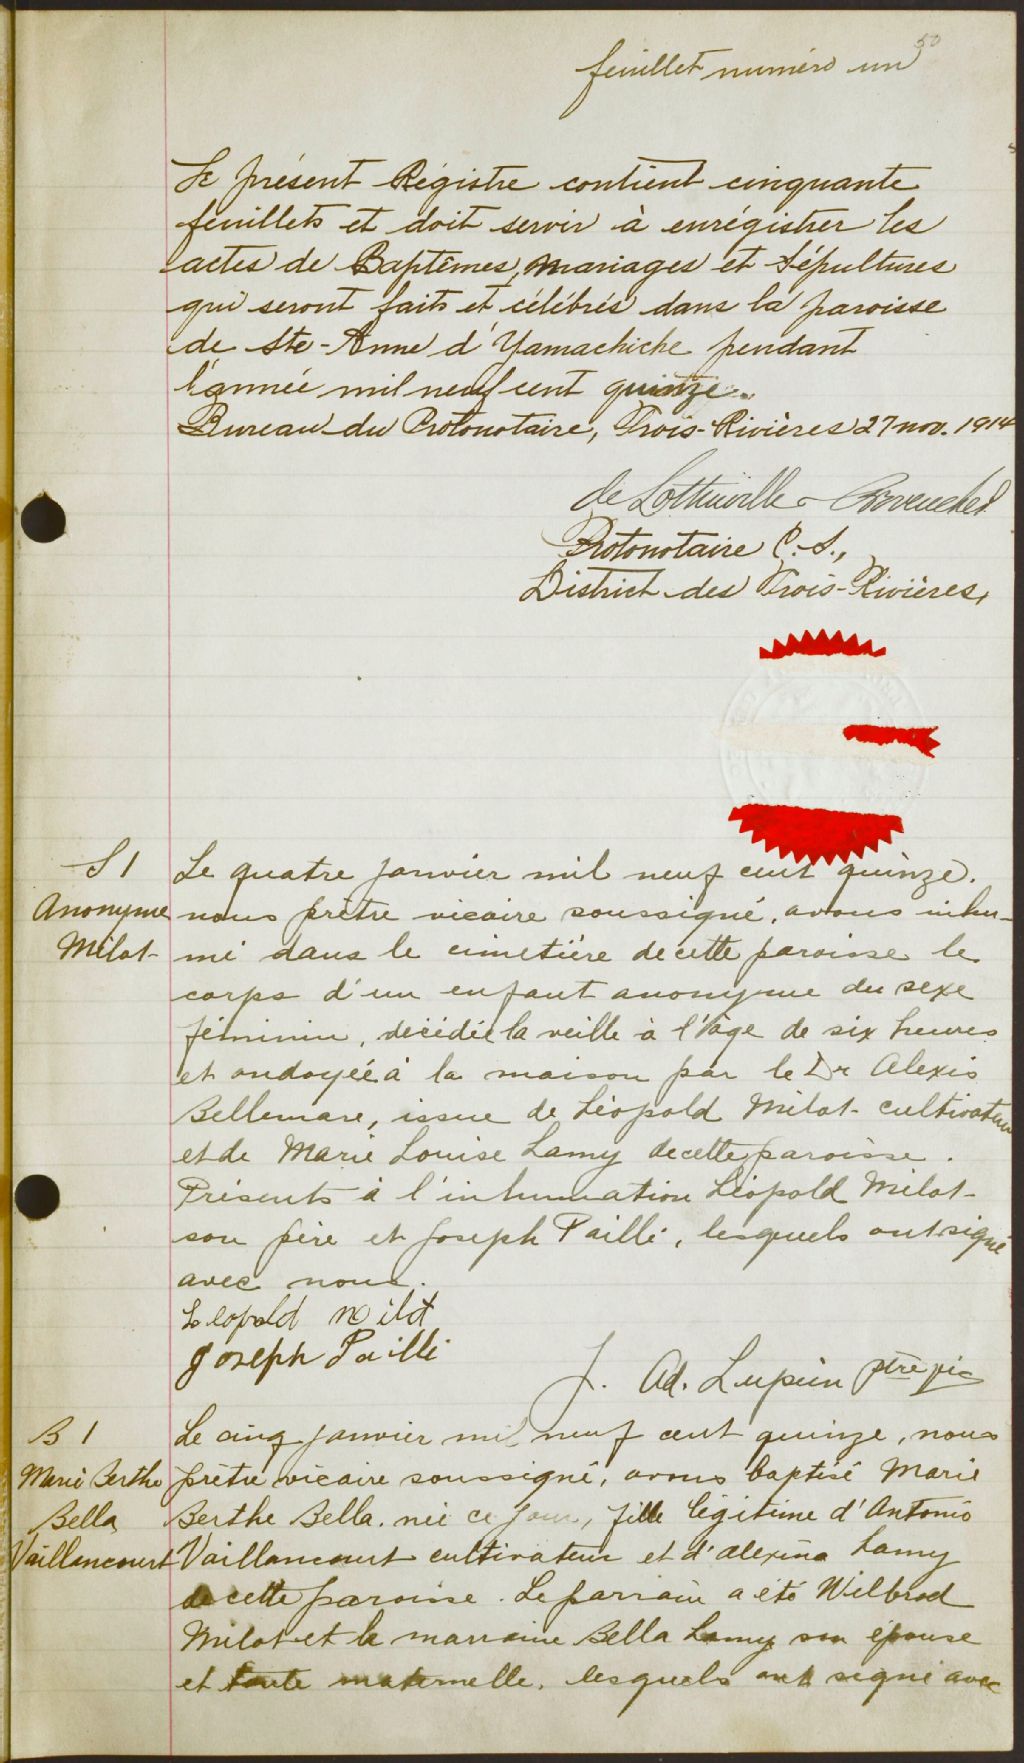 50
feuillet numéro un
Le présent Régistre contient cinquante
feuillets et doit servir à enrégistrer les
actes de Baptêmes, Mariages et Sépultures
qui seront faits et célébrés dans la paroisse
de Ste-Anne d'Yamachiche pendant
l'année mil neuf cent quinze.
Bureau du Protonotaire, Trois-Rivières 27 nov. 1914
de Lottinville
Protonotaire C.S.,
District des Trois-Rivières,
S 1
Anonyme
Milot
Le quatre janvier mil neuf cent quinze.
nous prêtre vicaire soussigné, avons inhu-
mé dans le cimetière de cette paroisse le
corps d'un enfant anonyme du sexe
féminin, décédée la veille à l'âge de six heures
et ondoyée à la maison par le Dr Alexis
Bellemare, issue de Léopold Milot cultivateur
et de Marie Louise Lamy de cette paroisse.
Présents à l'inhumation Léopold Milot
son père et Joseph Paillé, lesquels ont signé
avec nous.
Leopold Milot
Joseph Paillé
J. Ad. Lupien ptre vic
B 1
Marie Berthe
Bella
Vaillancourt
Le cinq janvier mil neuf cent quinze, nous
prêtre vicaire soussigné, avons baptisé Marie
Berthe Bella, née ce jour, fille légitime d'Antonio
Vaillancourt cultivateur et d'Alexina Lamy
de cette paroisse. Le parrain a été Wilbrod
Milot et la marraine Bella Lamy son épouse
et tante maternelle, lesquels ont signé avec